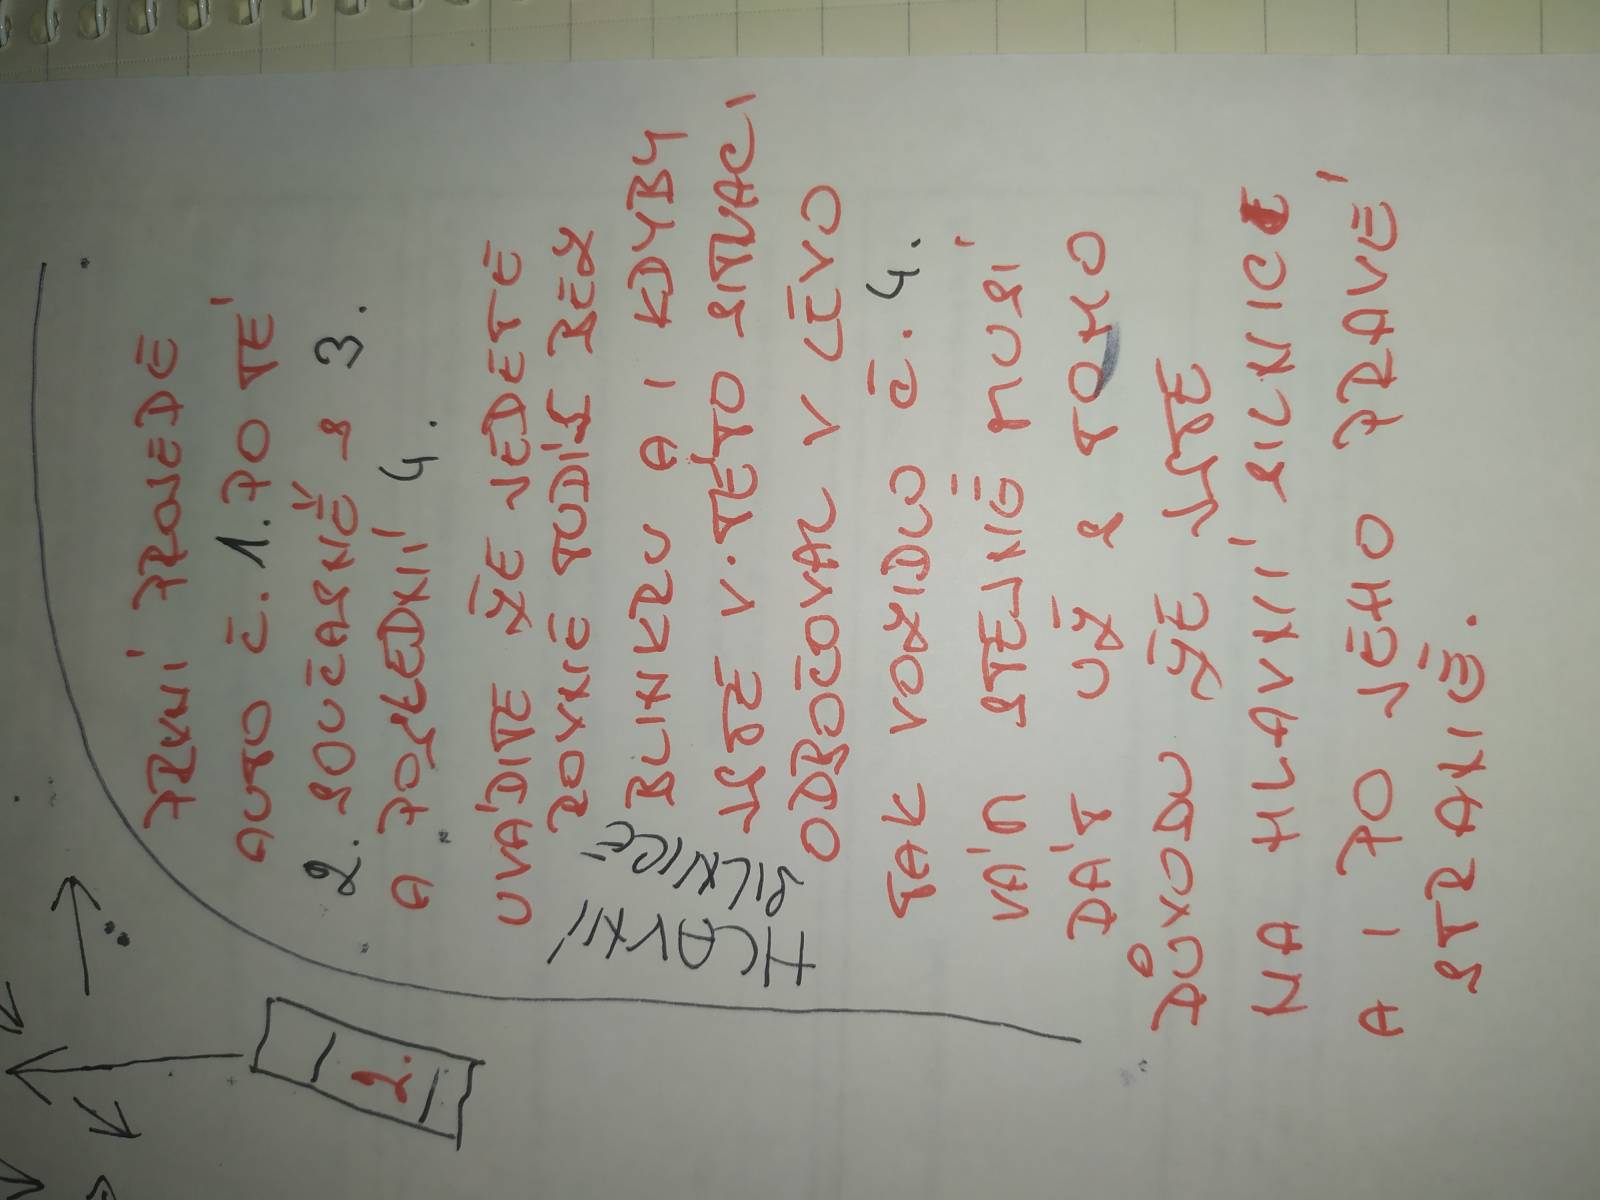 PRVNÍ PROJEDE
AUTO Č. 1. PO TÉ
2. SOUČASNĚ S 3.
A POSLEDNÍ 4.
UVÁDÍTE ŽE JEDETE
ROVNĚ TUDÍŠ BEZ
BLINKRU A I KDYBY
JSTE V. TÉTO SITUACI
ODBOČOVAL V LEVO
TAK VOZIDLO Č. 4.
VÁM STEJNĚ MUSÍ
DÁT UŽ S TOHO
DŮVODU ŽE JSTE
NA HLAVNÍ SILNICE
A I PO JEHO PRAVÉ
STRANĚ.
HLAVNÍ
SILNICE
2.